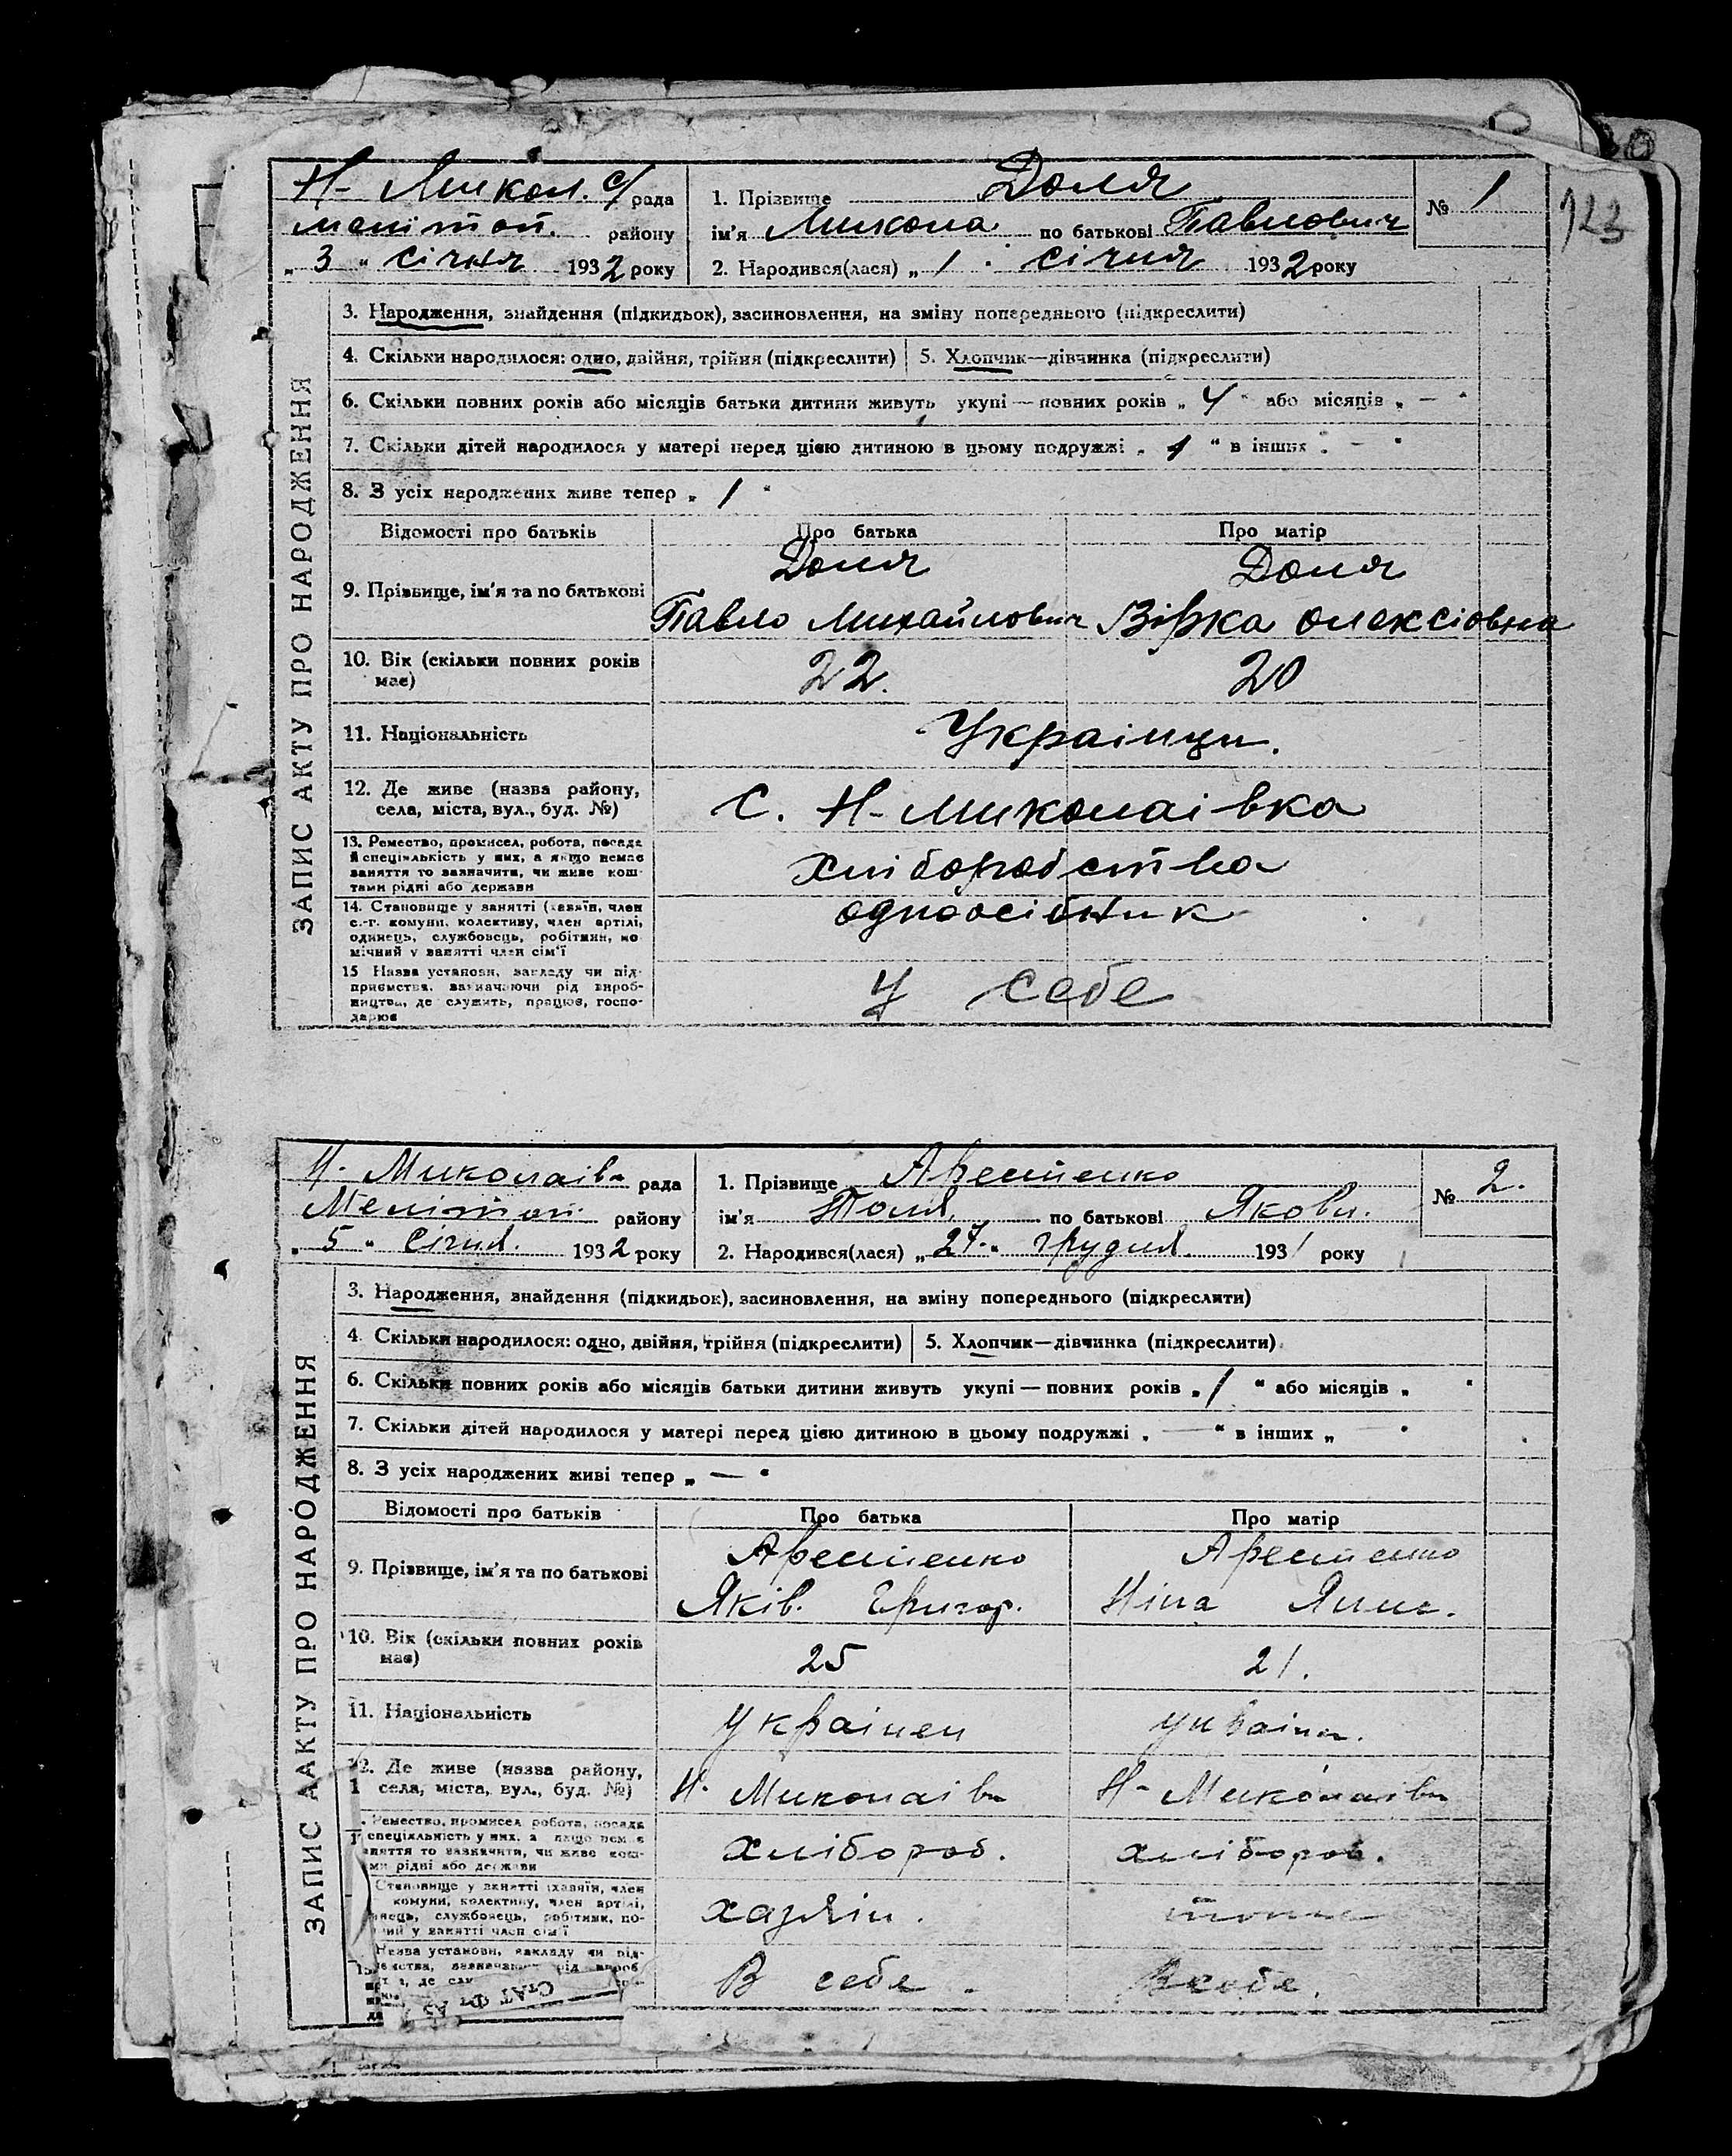 123
Н- Микол. с/рада
меліпіоп. району
„ 3 “ січня 1932 року
1. Прізвище Доля
ім'я Микола по батькові Павлович
2. Народився(лася) „ 1 “ січня 1932 року
№ 1
ЗАПИС АКТУ ПРО НАРОДЖЕННЯ
3. Народження, знайдення (підкидьок), засиновлення, на зміну попереднього (підкреслити)
4. Скільки народилося: одно, двійня, трійня (підкреслити)
5. Хлопчик—дівчинка (підкреслити)
6. Скільки повних років або місяців батьки дитини живуть укупі — повних років „ 4 “ або місяців „ — “
7. Скільки дітей народилося у матері перед цією дитиною в цьому подружжі „ 1 “ в інших „ — “
8. З усіх народжених живе тепер „ 1 “
Відомості про батьків
Про батька
Про матір
9. Прізвище, ім'я та по батькові
Доля
Павло Михайлович
Доля
Вірка Олексіовна
10. Вік (скільки повних років
має)
22.
20
11. Національність
Українци.
12. Де живе (назва району,
села, міста, вул., буд. №)
С. Н-Миколаівка
13. Ремество, промисел, робота, посада
й спеціяльність у них, а якщо немає
заняття то зазначити, чи живе кош-
тами рідні або держави
хліборобства
14. Становище у занятті (хазяїн, член
с.-г. комуни, колективу, член артілі,
одинець, службовець, робітник, по
мічний у занятті член сім'ї
одноосібник
15 Назва установи, закладу чи під-
приємства, зазначаючи рід вироб-
ництва, де служить, працює, госпо-
дарює
У себе
Н. Миколаів- рада
Меліпіоп. району
„ 5 “ Січня. 1932 року
1. Прізвище Арешенко
ім'я Толя по батькові Якови.
2. Народився(лася) „ 27. “ грудня 1931 року
№ 2.
ЗАПИС ААКТУ ПРО НАРОДЖЕННЯ
3. Народження, знайдення (підкидьок), засиновлення, на зміну попереднього (підкреслити)
4. Скільки народилося: одно, двійня, трійня (підкреслити)
5. Хлопчик—дівчинка (підкреслити)
6. Скільки повних років або місяців батьки дитини живуть укупі — повних років „ 1 “ або місяців „ “
7. Скільки дітей народилося у матері перед цією дитиною в цьому подружжі „ — “ в інших „ — “
8. З усіх народжених живі тепер „ — “
Відомості про батьків
Про батька
Про матір
9. Прізвище, ім'я та по батькові
Арешенко
Яків. Григор.
Арешенко
Ніна
10. Вік (скільки повних років
має)
25
21.
11. Національність
Українец
україн.
12. Де живе (назва району,
села, міста, вул., буд. №)
Н. Миколаів
Н- Миколаів
Ремество, промисел робота, посада
спеціяльність у них, а якщо немає
няття то зазначити, чи живе кош-
ми рідні або держави
хлібороб.
хлібороб.
Становище у занятті (хазяїн, член
комуни, колективу, член артілі,
нець, службовець, робітник, по-
ний у занятті член сім'ї
хазяін.
Назва установи, закладу чи під-
В себе.
В себе.